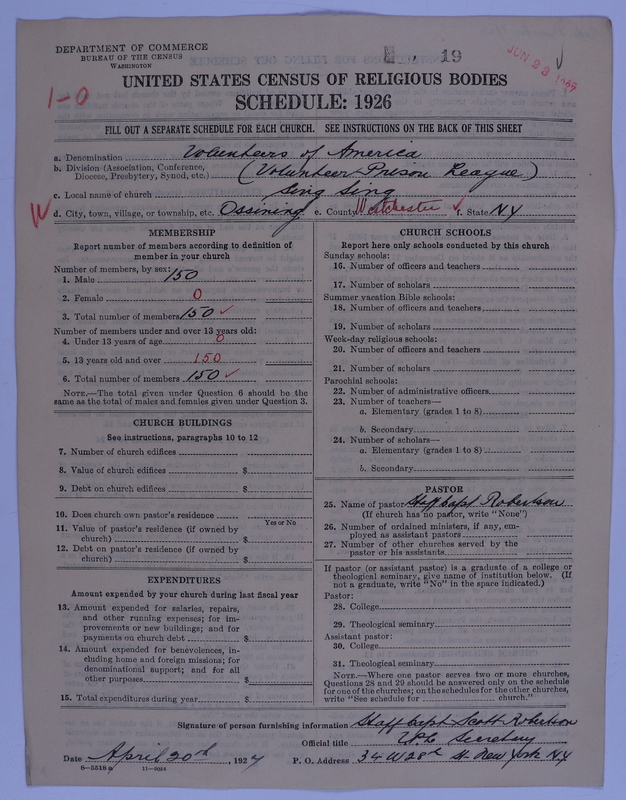 DEPARTMENT OF COMMERCE
BUREAU OF THE CENSUS
WASHINGTON
19
JUN 23
UNITED STATES CENSUS OF RELIGIOUS BODIES
1-0
SCHEDULE: 1926
FILL OUT A SEPARATE SCHEDULE FOR EACH CHURCH. SEE INSTRUCTIONS ON THE BACK OF THIS SHEET
a. Denomination Volunteers of America
b. Division (Association, Conference, Diocese, Presbytery, Synod, etc.) (Volunteer Prison League)
c. Local name of church Sing Sing
d. City, town, village, or township, etc. Ossining e. County Westchester ✓ f. State N.Y
MEMBERSHIP
Report number of members according to definition of
member in your church
Number of members, by sex:
1. Male 150
2. Female 0
3. Total number of members 150 ✓
Number of members under and over 13 years old:
4. Under 13 years of age 0
5. 13 years old and over 150
6. Total number of members 150 ✓
NOTE.—The total given under Question 6 should be the
same as the total of males and females given under Question 3.
CHURCH BUILDINGS
See instructions, paragraphs 10 to 12
7. Number of church edifices
8. Value of church edifices $
9. Debt on church edifices $
10. Does church own pastor's residence
Yes or No
11. Value of pastor's residence (if owned by
church) $
12. Debt on pastor's residence (if owned by
church) $
EXPENDITURES
Amount expended by your church during last fiscal year
13. Amount expended for salaries, repairs,
and other running expenses; for im-
provements or new buildings; and for
payments on church debt $
14. Amount expended for benevolences, in-
cluding home and foreign missions; for
denominational support; and for all
other purposes $
15. Total expenditures during year $
CHURCH SCHOOLS
Report here only schools conducted by this church
Sunday schools:
16. Number of officers and teachers
17. Number of scholars
Summer vacation Bible schools:
18. Number of officers and teachers
19. Number of scholars
Week-day religious schools:
20. Number of officers and teachers
21. Number of scholars
Parochial schools:
22. Number of administrative officers
23. Number of teachers—
a. Elementary (grades 1 to 8)
b. Secondary
24. Number of scholars—
a. Elementary (grades 1 to 8)
b. Secondary
PASTOR
25. Name of pastor Staff Capt Robertson
(If church has no pastor, write "None")
26. Number of ordained ministers, if any, em-
ployed as assistant pastors
27. Number of other churches served by the
pastor or his assistants
If pastor (or assistant pastor) is a graduate of a college or
theological seminary, give name of institution below. (If
not a graduate, write "No" in the space indicated.)
Pastor:
28. College
29. Theological seminary
Assistant pastor:
30. College
31. Theological seminary
NOTE.—Where one pastor serves two or more churches,
Questions 28 and 29 should be answered only on the schedule
for one of the churches; on the schedules for the other churches,
write "See schedule for church."
Signature of person furnishing information Staff Capt Scott Robertson
Official title V.P.L. Secretary
Date April 20th, 1927 P. O. Address 34 W 28th St New York N.Y
8—5518a 11—9024